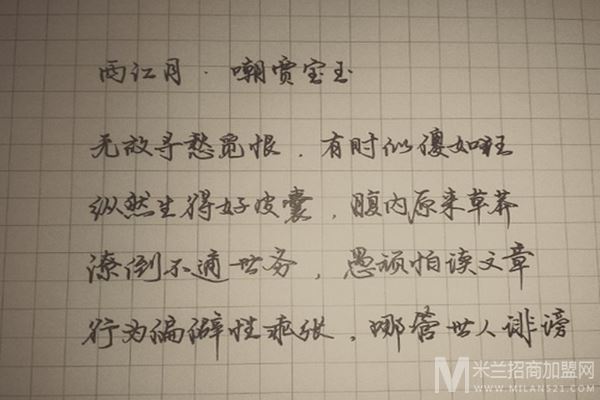 西江月·嘲贾宝玉
无故寻愁觅恨，有时似傻如狂
纵然生得好皮囊，腹内原来草莽
潦倒不通世务，愚顽怕读文章
行为偏僻性乖张，哪管世人诽谤
米兰招商加盟网
WWW.MILANS21.COM